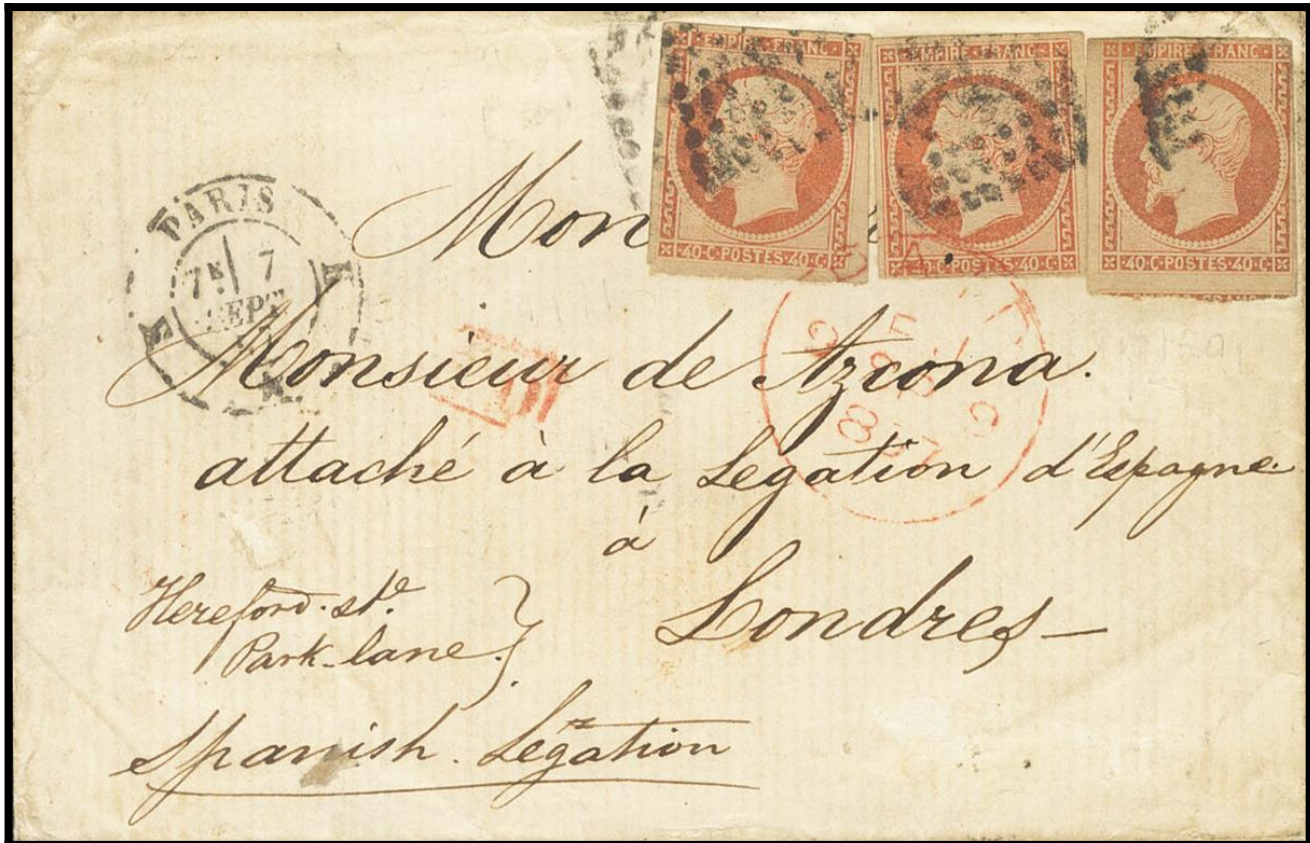 EMPIRE · FRANC · EMPIRE · FRANC · EMPIRE · FRANC ·
40 · C · POSTES · 40 · C · 40 · C · POSTES · 40 · C · 40 · C · POSTES · 40 · C ·
PARIS
7 E 7
SEPT
Mon
PD
Monsieur de Azcona.
attaché à la Legation d'Espagne
à
Londres
Hereford. st.
Park-lane
Spanish. Légation